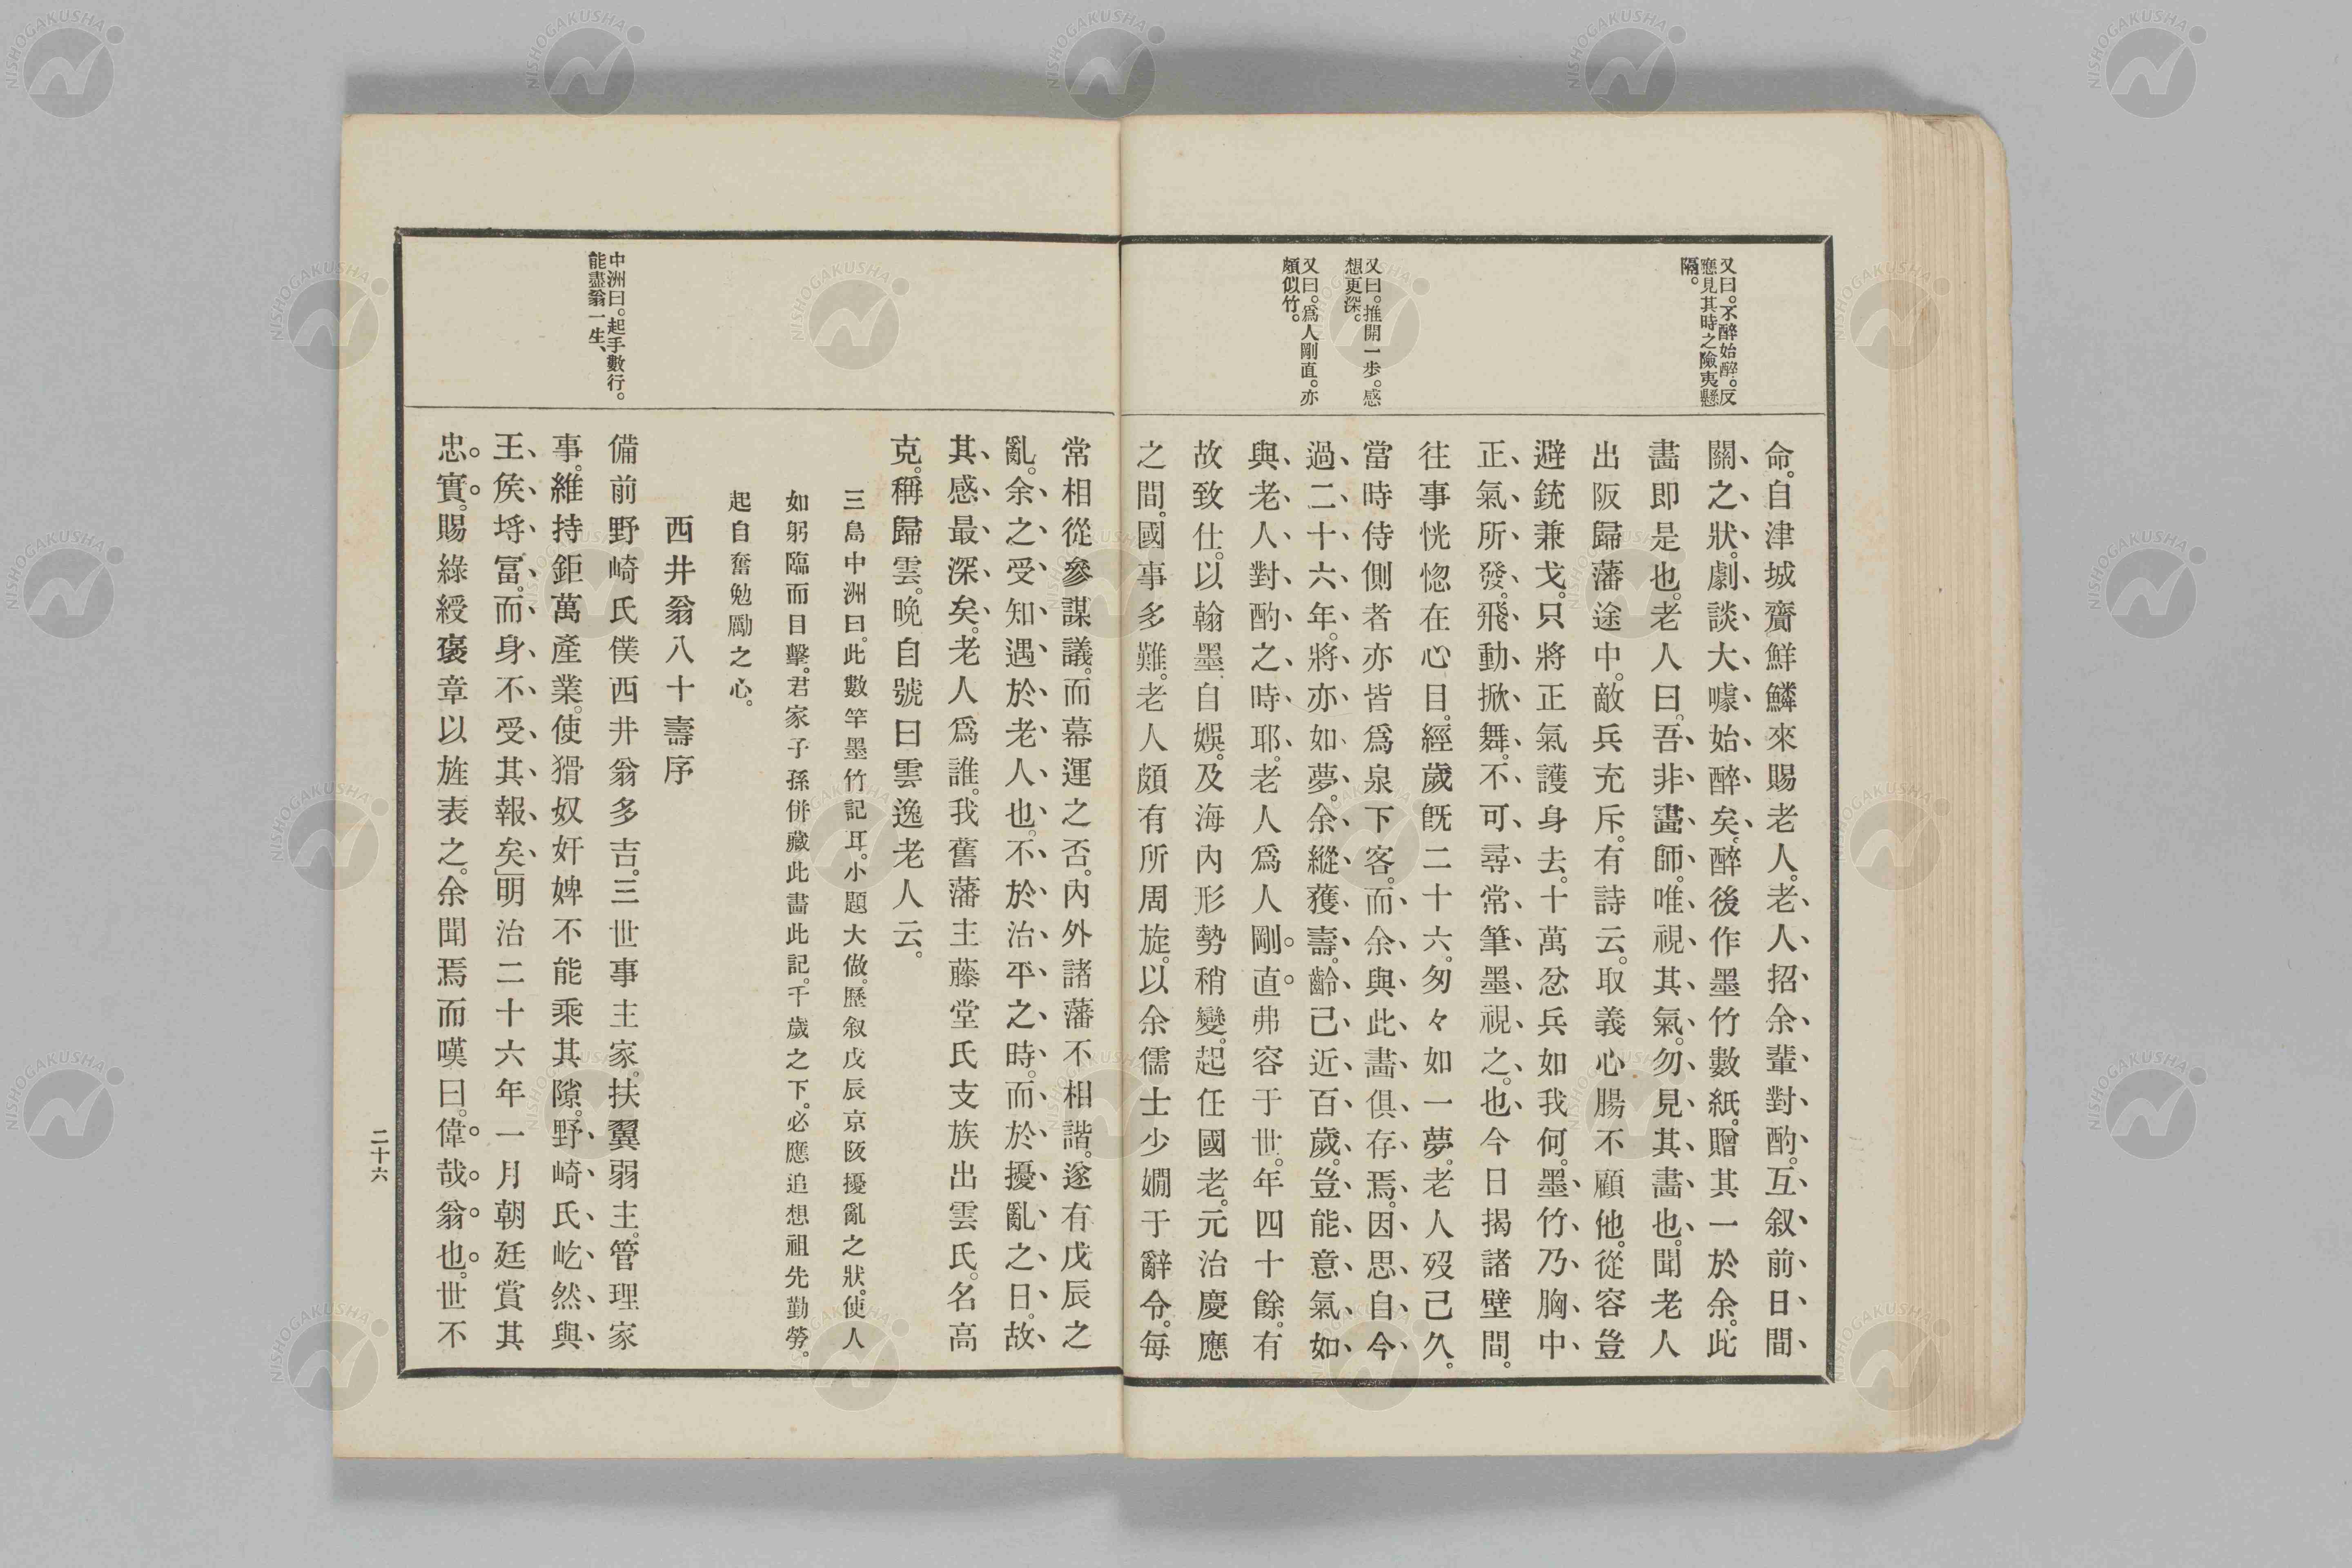 又曰。不醉始醉。反
應見其時之險夷懸
隔。
又曰。推開一步。感
想更深。
又曰。爲人剛直。亦
頗似竹。
命。自津城齎鮮鱗來賜老人。老人招余輩對酌。互叙前日間
關之狀。劇談大噱始醉矣。醉後作墨竹數紙。贈其一於余。此
畵即是也。老人曰。吾非畵師。唯視其氣。勿見其畵也。聞老人
出阪歸藩途中。敵兵充斥。有詩云。取義心腸不顧他。從容豈
避銃兼戈。只將正氣護身去。十萬忿兵如我何。墨竹乃胸中
正氣所發。飛動掀舞。不可尋常筆墨視之也。今日揭諸壁間。
往事恍惚在心目。經歲既二十六。匆々如一夢。老人歿已久。
當時侍側者亦皆爲泉下客。而余與此畵俱存焉。因思自今
過二十六年。將亦如夢。余縱獲壽。齡已近百歲。豈能意氣如
與老人對酌之時耶。老人爲人剛直。弗容于世。年四十餘。有
故致仕。以翰墨自娛。及海內形勢稍變。起任國老。元治慶應
之間。國事多難。老人頗有所周旋。以余儒士少嫺于辭令。每
中洲曰。起手數行。
能盡翁一生、
常相從參謀議。而幕運之否。內外諸藩不相諧。遂有戊辰之
亂。余之受知遇於老人也。不於治平之時。而於擾亂之日。故
其感最深矣。老人爲誰。我舊藩主藤堂氏支族出雲氏。名高
克。稱歸雲。晩自號曰雲逸老人云。
三島中洲曰。此數竿墨竹記耳。小題大做。歷叙戊辰京阪擾亂之狀。使人
如躬臨而目擊。君家子孫併藏此畵此記。千歲之下。必應追想祖先勤勞。
起自奮勉勵之心。
西井翁八十壽序
備前野崎氏僕西井翁多吉。三世事主家。扶翼弱主。管理家
事。維持鉅萬產業。使猾奴奸婢不能乘其隙。野崎氏屹然與
王矦埒富。而身不受其報矣」明治二十六年一月朝廷賞其
忠實。賜綠綬褒章以旌表之。余聞焉而嘆曰。偉哉翁也。世不
二十六
NISHOGAKUSHA